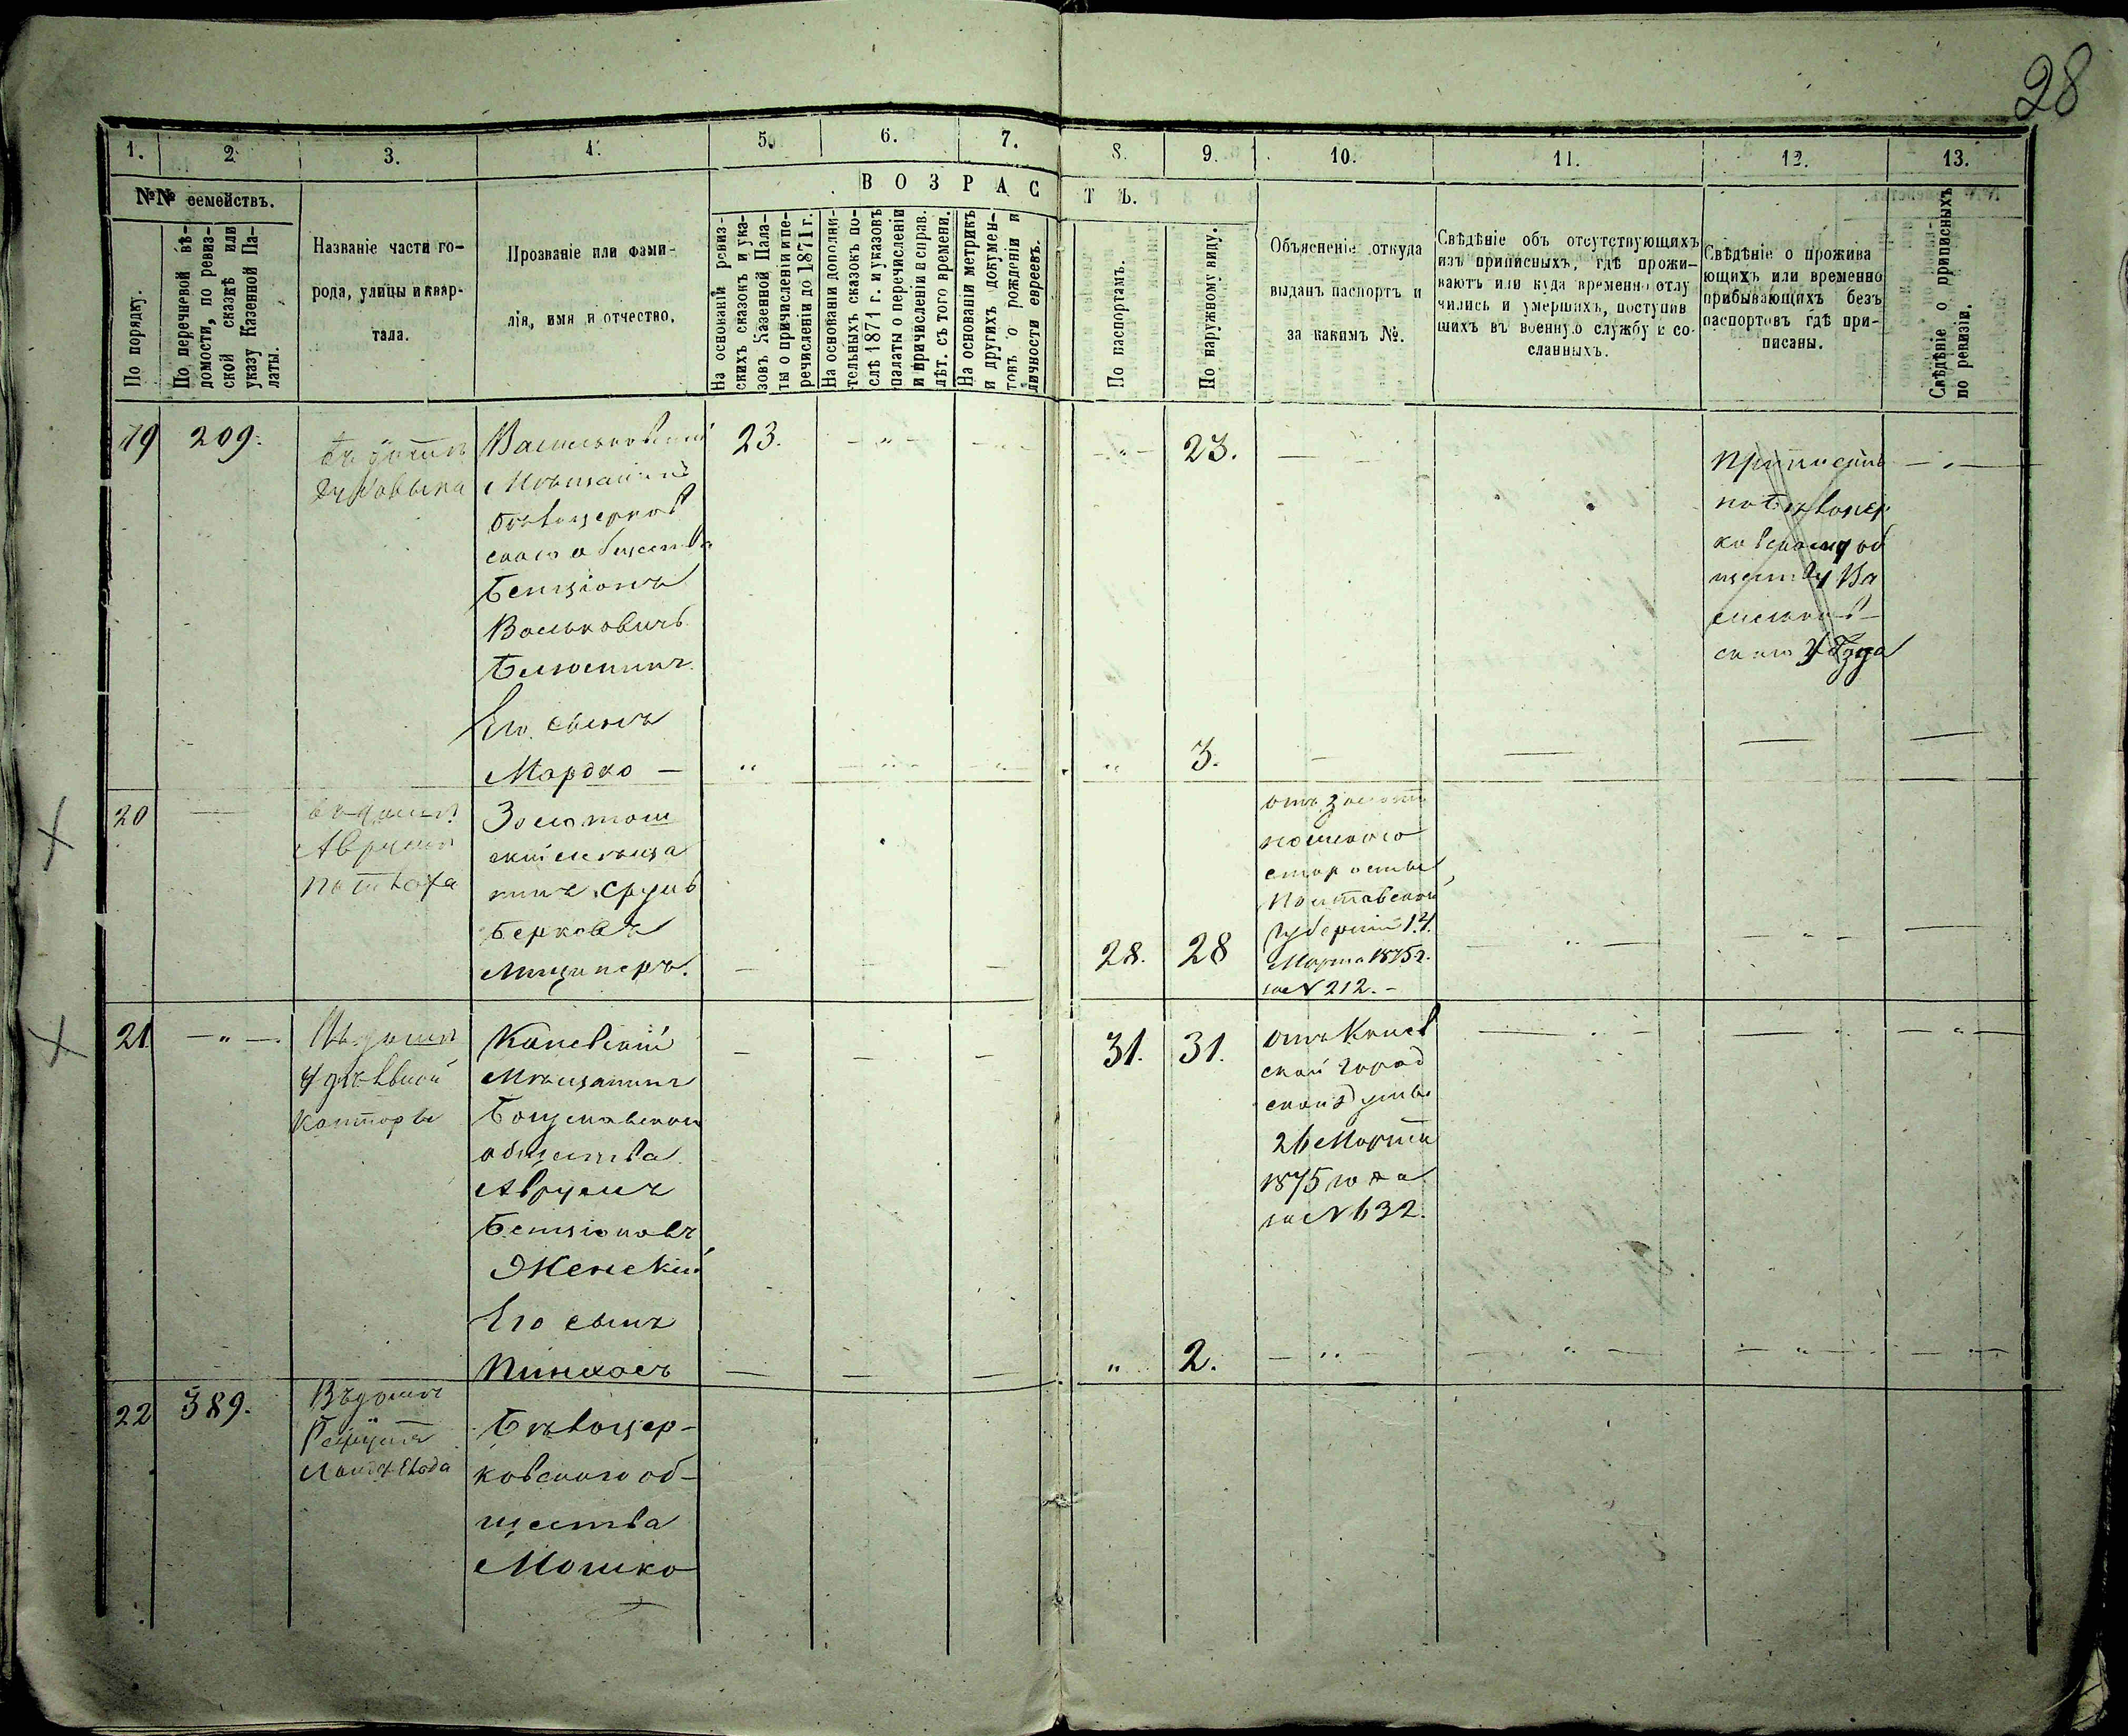 28
1. 2 3. 4. 5. 6. 7. 8. 9. 10. 11. 12. 13.
№№ семействъ.
ВОЗРАСТЪ.
По порядку.
По перечневой вѣ-
домости, по ревиз-
ской сказкѣ или
указу Казенной Па-
латы.
Названіе части го-
рода, улицы и квар-
тала.
Прозваніе или фами-
лія, имя и отчество.
На основаніи ревиз-
скихъ сказокъ и ука-
зовъ Казенной Пала-
ты о причисленіи и пе-
речисленіи до 1871 г.
На основаніи дополни-
тельныхъ сказокъ по-
слѣ 1871 г. и указовъ
палаты о перечисленіи
и причисленіи и справ.
лѣт. съ того времени.
На основаніи метрикъ
и другихъ докумен-
товъ о рожденіи и
личности евреевъ.
По паспортамъ.
По наружному виду.
Объясненіе откуда
выданъ паспортъ и
за какимъ №.
Свѣдѣніе объ отсутствующихъ
изъ приписныхъ, гдѣ прожи-
ваютъ или куда временно отлу
чились и умершихъ, поступив
шихъ въ военную службу и со-
сланныхъ.
Свѣдѣніе о прожива
ющихъ или временно
прибывающихъ безъ
паспортовъ гдѣ при-
писаны.
Свѣдѣніе о приписныхъ
по ревизіи.
19 209.
Васильковскій
Мѣщанинъ
Бѣлоцерков
скаго общества
Бенціонъ
Вольковичъ
23. 23.
Приписанъ
по Бѣлоцер
ковскому об
ществу Ва
сильков-
скаго Уѣзда
Его сынъ
Мордко —
3.
20
въ домѣ
Аврума
Золотош
скій мѣща
нинъ Срул
Берковъ
28. 28
отъ Золото
ношскаго
старосты
Полтавской
Губерніи 14.
Марта 1875 г.
за N 212. -
21.
Въ домѣ
Удѣльной
Конторы
Каневскій
Мѣщанинъ
Богуславскаго
общества
Аврумъ
Бенціоновъ
Женскій
31. 31.
отъ Канев
ской Город
ской думы
26 Марта
1875 года
за N 632.
Его сынъ
Пинхасъ
2.
22 389.
Въ домѣ
Бѣлоцер-
ковскаго об-
щества
Мошко